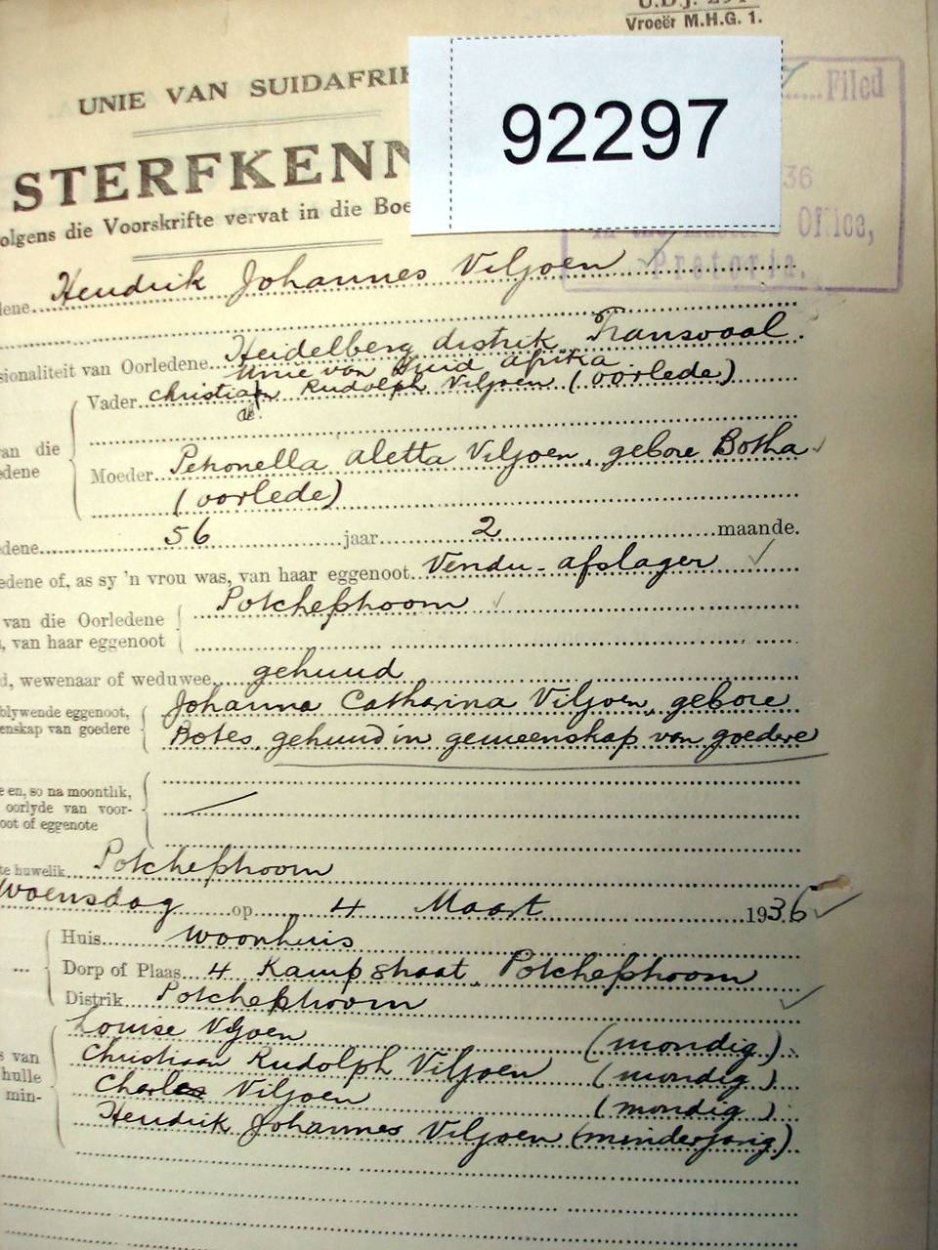 U.D.J. 294
Vroeër M.H.G. 1.
UNIE VAN SUIDAFRIK
92297
Filed
36
STERFKENN
Office,
Pretoria.
olgens die Voorskrifte vervat in die Boe
lene Hendrik Johannes Viljoen
sionaliteit van Oorledene Heidelberg distrik Transvaal.
Unie van Suid Afrika
Vader Christiaan Rudolph Viljoen (oorlede)
van die
edene
Moeder Petronella Aletta Viljoen, gebore Botha
(oorlede)
edene 56 jaar 2 maande.
edene of, as sy 'n vrou was, van haar eggenoot Vendu-afslager
van die Oorledene Potchefstroom
, van haar eggenoot
d, wewenaar of weduwee gehuud
blywende eggenoot, Johanna Catharina Viljoen, gebore
enskap van goedere Botes, gehuud in gemeenskap van goedere
e en, so na moontlik,
oorlyde van voor-
oot of eggenote
te huwelik Potchefstroom
Woensdag op 4 Maart 1936
Huis Woonhuis
Dorp of Plaas 4 Kampstraat, Potchefstroom
Distrik Potchefstroom
Louise Viljoen (mondig)
s van
Christiaan Rudolph Viljoen (mondig)
hulle
Charles Viljoen (mondig)
min-
Hendrik Johannes Viljoen (minderjarig)